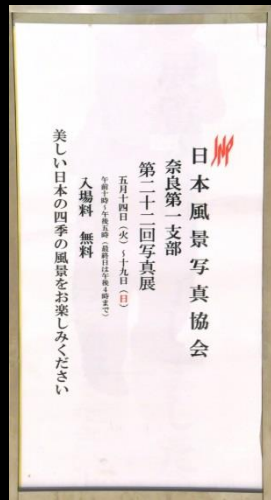 JNP
日本風景写真協会
奈良第一支部
第二十二回写真展
五月十四日（火）～十九日（日）
午前十時～午後五時（最終日は午後4時まで）
入場料　無料
美しい日本の四季の風景をお楽しみください